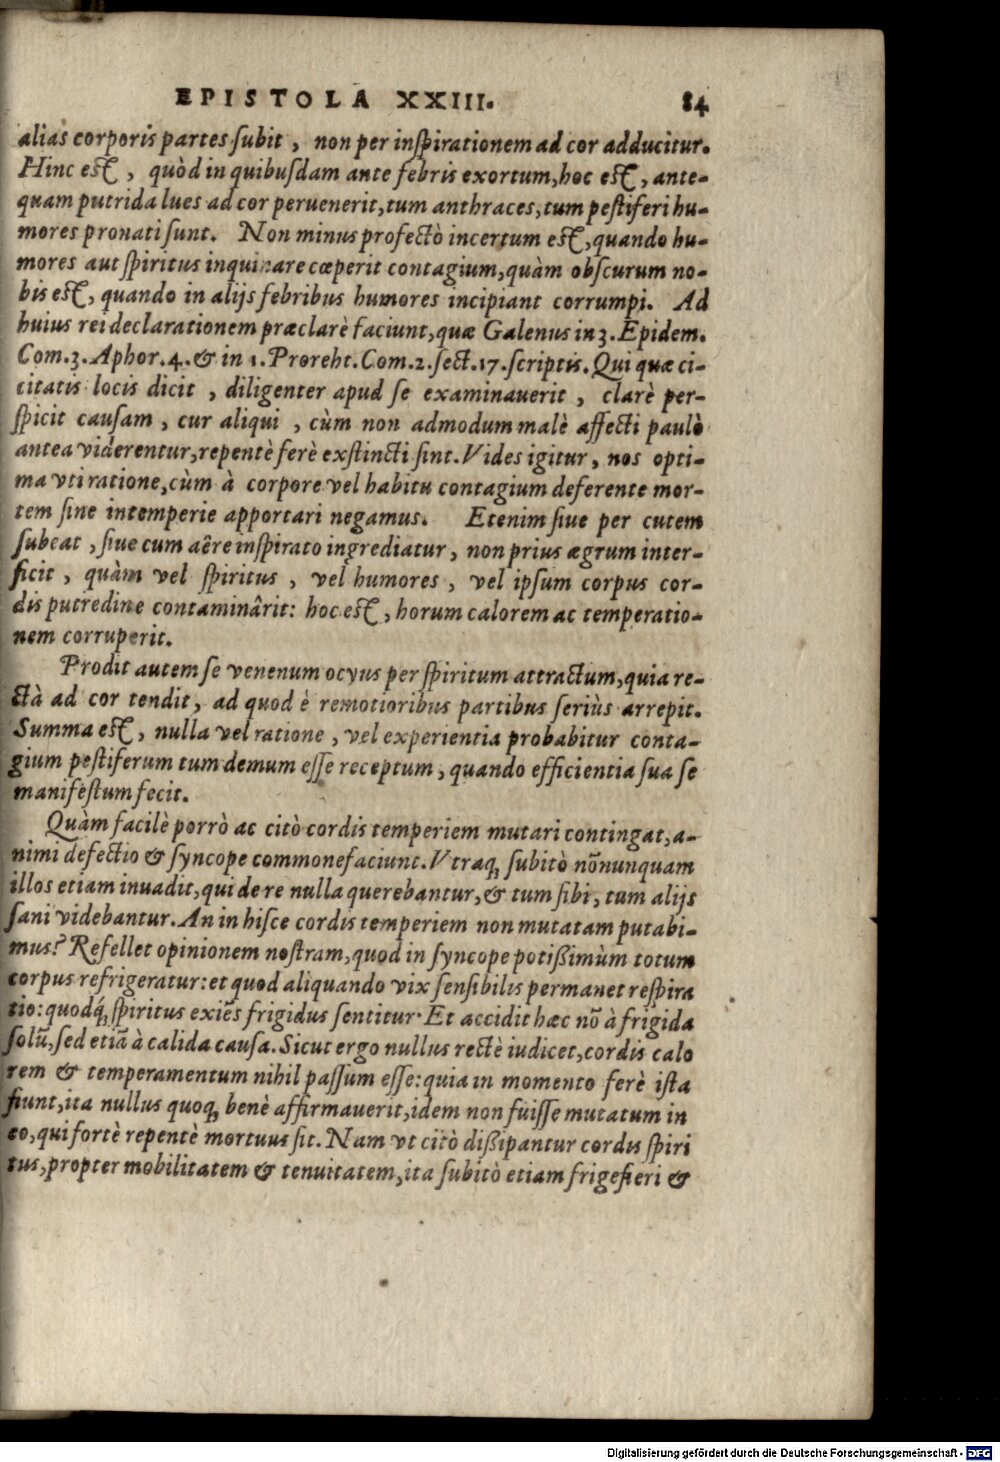 EPISTOLA XXIII. 84
alias corporis partes ſubit, non per inſpirationem ad cor adducitur.
Hinc eſt, quòd in quibuſdam ante febris exortum, hoc eſt, ante-
quam putrida lues ad cor peruenerit, tum anthraces, tum peſtiferi hu-
mores pronati ſunt. Non minus profectò incertum eſt, quando hu-
mores aut ſpiritus inquinare cœperit contagium, quàm obſcurum no-
bis eſt, quando in alijs febribus humores incipiant corrumpi. Ad
huius rei declarationem præclarè faciunt, quæ Galenus in 3. Epidem.
Com.3. Aphor.4. & in 1. Proreht. Com.2. ſect.17. ſcriptis. Qui quæ ci-
citatis locis dicit, diligenter apud ſe examinauerit, clarè per-
ſpicit cauſam, cur aliqui, cùm non admodum malè affecti paulò
antea viderentur, repentè ferè exſtincti ſint. Vides igitur, nos opti-
ma vti ratione, cùm à corpore vel habitu contagium deferente mor-
tem ſine intemperie apportari negamus. Etenim ſiue per cutem
ſubeat, ſiue cum aëre inſpirato ingrediatur, non prius ægrum inter-
ficit, quàm vel ſpiritus, vel humores, vel ipſum corpus cor-
dis putredine contaminârit: hoc eſt, horum calorem ac temperatio-
nem corruperit.
Prodit autem ſe venenum ocyus per ſpiritum attractum, quia re-
ctà ad cor tendit, ad quod è remotioribus partibus ſeriùs arrepit.
Summa eſt, nulla vel ratione, vel experientia probabitur conta-
gium peſtiferum tum demum eſſe receptum, quando efficientia ſua ſe
manifeſtum fecit.
Quàm facilè porrò ac citò cordis temperiem mutari contingat, a-
nimi defectio & ſyncope commonefaciunt. Vtraq; ſubitò nõnunquam
illos etiam inuadit, qui de re nulla querebantur, & tum ſibi, tum alijs
ſani videbantur. An in hiſce cordis temperiem non mutatam putabi-
mus? Refellet opinionem noſtram, quod in ſyncope potißimùm totum
corpus refrigeratur: et quod aliquando vix ſenſibilis permanet reſpira
tio: quodq́; ſpiritus exiẽs frigidus ſentitur. Et accidit hæc nõ à frigida
ſolũ, ſed etiã à calida cauſa. Sicut ergo nullus rectè iudicet, cordis calo
rem & temperamentum nihil paſſum eſſe: quia in momento ferè iſta
fiunt, ita nullus quoq; benè affirmauerit, idem non fuiſſe mutatum in
eo, qui fortè repentè mortuus ſit. Nam vt citò dißipantur cordis ſpiri
tus, propter mobilitatem & tenuitatem, ita ſubitò etiam frigefieri &
Digitalisierung gefördert durch die Deutsche Forschungsgemeinschaft - DFG